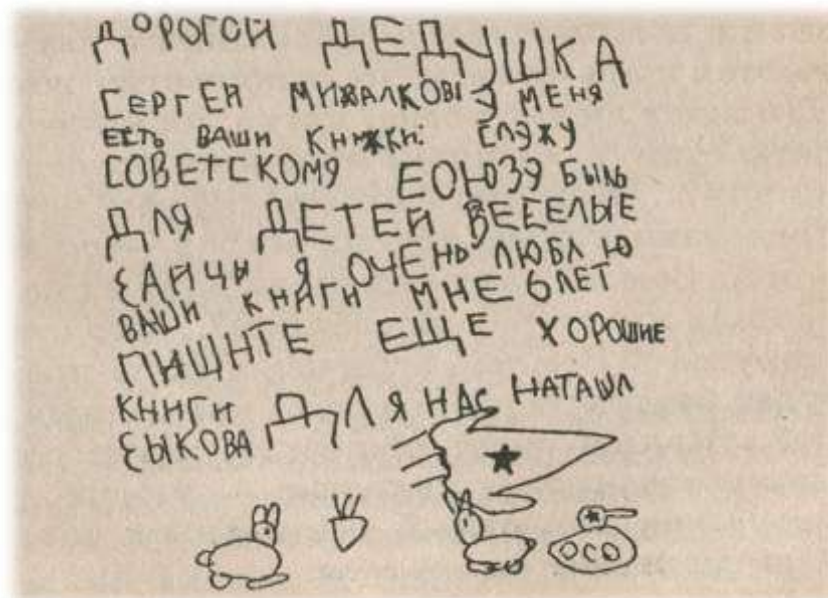 ДОРОГОЙ ДЕДУШКА
СЕРГЕЙ МИХАЛКОВ! У МЕНЯ
ЕСТЬ ВАШИ КНИЖКИ: СЛУЖУ
СОВЕТСКОМУ СОЮЗУ БЫЛЬ
ДЛЯ ДЕТЕЙ ВЕСЕЛЫЕ
ЗАЙЦЫ Я ОЧЕНЬ ЛЮБЛЮ
ВАШИ КНИГИ МНЕ 6 ЛЕТ
ПИЩИТЕ ЕЩЕ ХОРОШИЕ
КНИГИ ДЛЯ НАС НАТАША
БЫКОВА